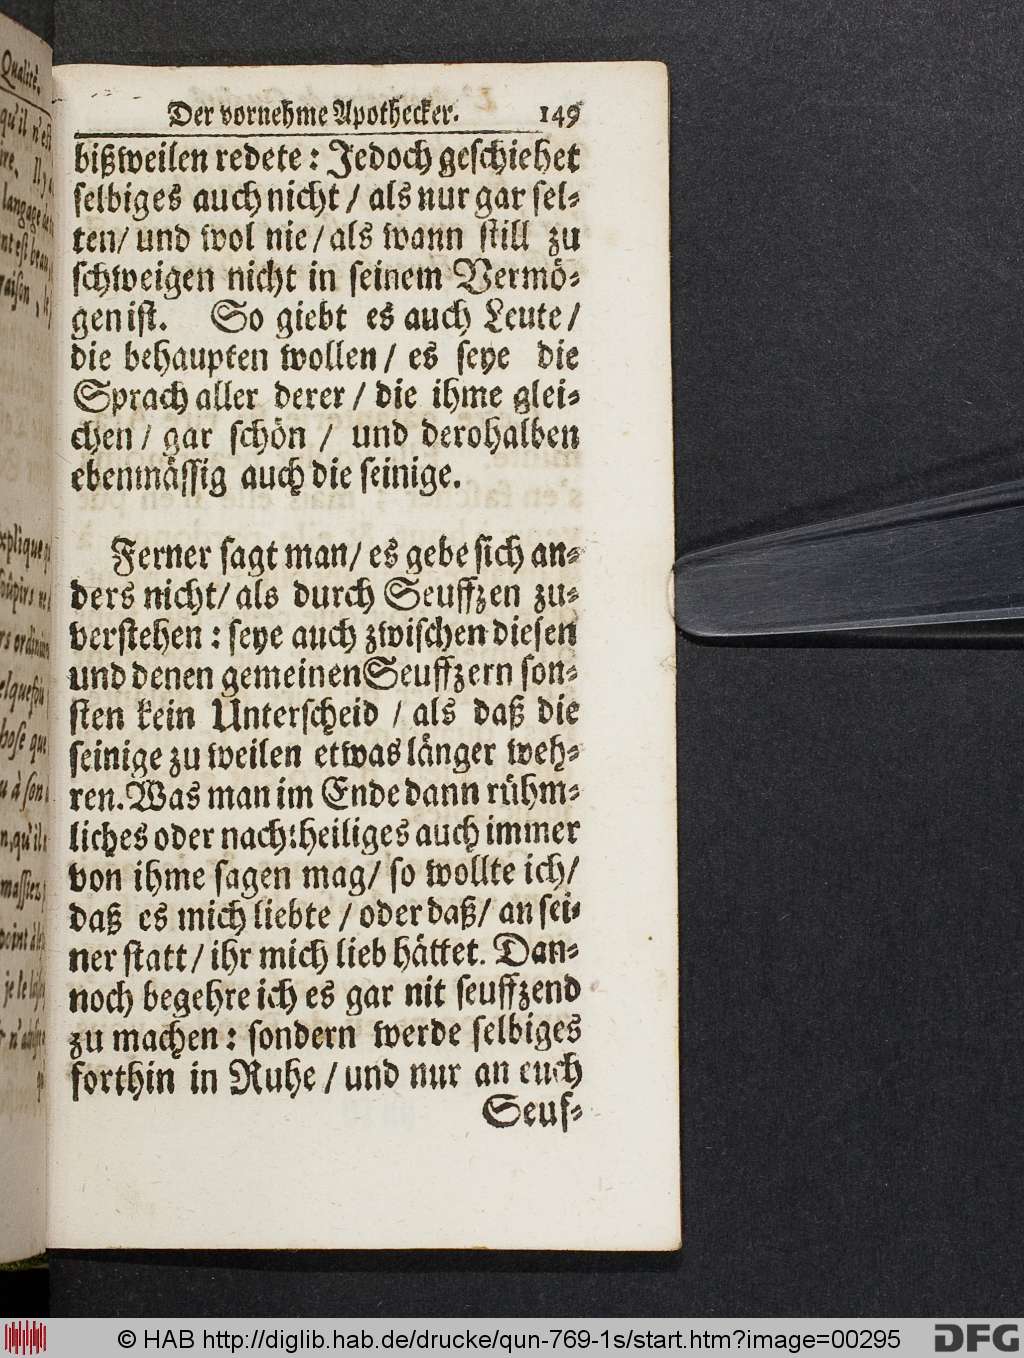 Der vornehme Apothecker. 149
bißweilen redete: Jedoch geschiehet
selbiges auch nicht / als nur gar sel-
ten/ und wol nie / als wann still zu
schweigen nicht in seinem Vermö-
gen ist. So giebt es auch Leute /
die behaupten wollen / es seye die
Sprach aller derer / die ihme glei-
chen / gar schön / und derohalben
ebenmässig auch die seinige.
Ferner sagt man/ es gebe sich an-
ders nicht/ als durch Seuffzen zu-
verstehen: seye auch zwischen diesen
und denen gemeinen Seuffzern son-
sten kein Unterscheid / als daß die
seinige zu weilen etwas länger weh-
ren. Was man im Ende dann rühm-
liches oder nachtheiliges auch immer
von ihme sagen mag/ so wollte ich/
daß es mich liebte / oder daß/ an sei-
ner statt / ihr mich lieb hättet. Dan-
noch begehre ich es gar nit seuffzend
zu machen: sondern werde selbiges
forthin in Ruhe / und nur an euch
Seuf-
Qualité.
qu'il n'est
langage
raison
explique
soûpirs
ordinaire
quelquefois
chose que
à son
qu'il
point
je le
© HAB http://diglib.hab.de/drucke/qun-769-1s/start.htm?image=00295
DFG